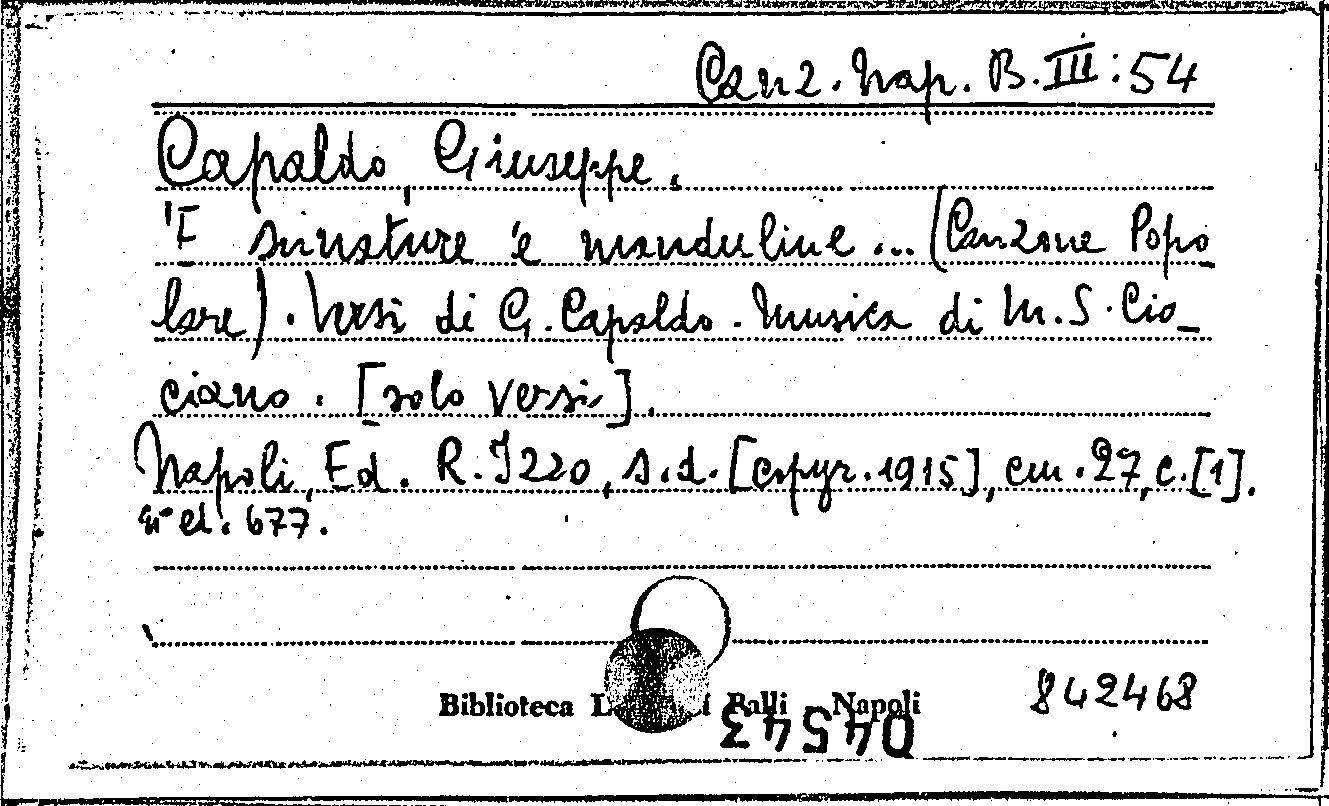 Canz. Nap. B. III : 54
Capaldo, Giuseppe.
'E sunature 'e manduline ... (Canzone Popo
lare). Versi di G. Capaldo. Musica di M. S. Cio_
ciano. [solo versi].
Napoli, Ed. R. Izzo, s.d. [copyr. 1915], cm. 27, c. [1].
n° ed. 677.
Biblioteca Palli Napoli
842468
04543